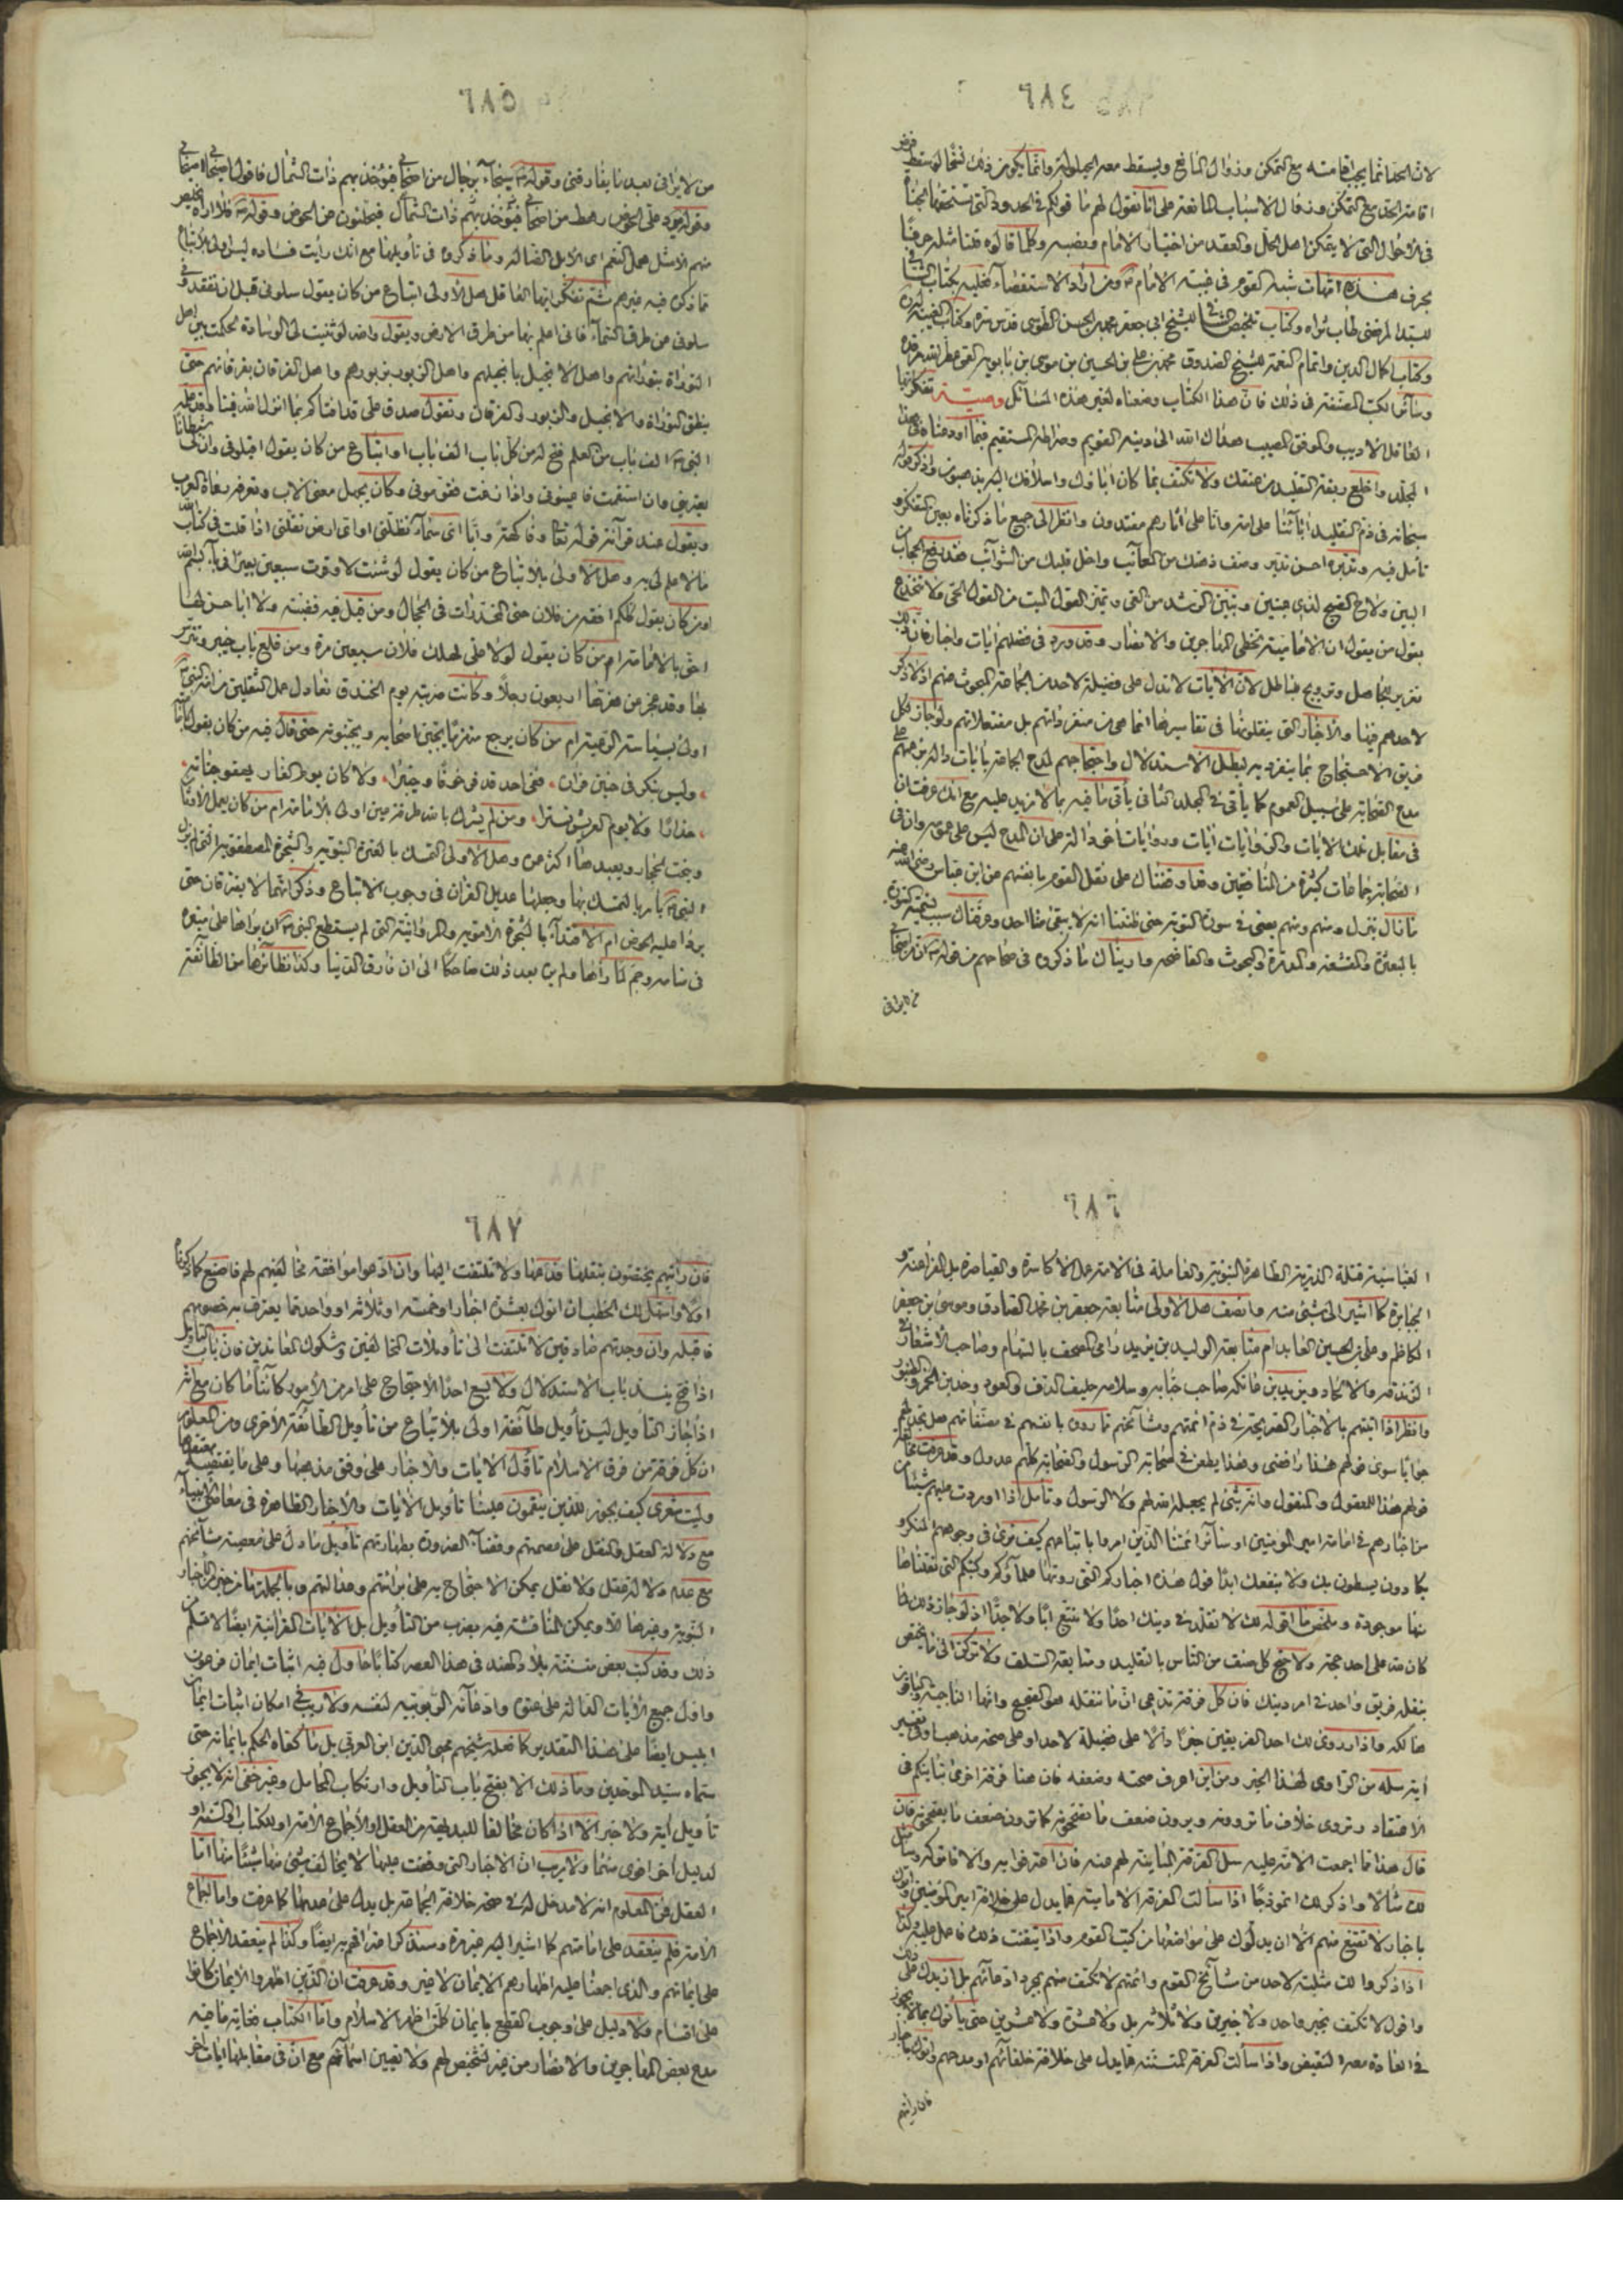 ٦٨٤
لان الحد انما يجب اقامته مع التمكن وزوال المانع ويسقط مع الحيلولة وانما يكون ذلك نسخا لو سقط فرض
اقامة الحد مع التمكن وزوال الاسباب المانعة على انا نقول لهم ما قولكم في الحدود التي تستحقها الجناة
في الاحوال التي لا يتمكن اهل الحل والعقد من اختيار الامام ونصبه وكلما قالوه قلنا مثله حرفا
بحرف هذه امهات شبه القوم في غيبة الامام ومن اراد الاستقصاء فعليه بكتاب الشافي
للسيد المرتضى طاب ثراه وكتاب تلخيص الشافي للشيخ ابي جعفر محمد بن الحسن الطوسي قدس سره وكتاب الغيبة له
وكتاب كمال الدين واتمام النعمة للشيخ الصدوق محمد بن علي بن الحسين بن موسى بن بابويه القمي عطر الله مرقده
وسائر الكتب المصنفة في ذلك فان هذا الكتاب وضعناه لغير هذه المسائل وصية تفكر ايها
العاقل الاديب والموفق المصيب هداك الله الى دينه القويم وصراطه المستقيم فيما اوردناه في هذا
المجلد واخلع ربقة التقليد من عنقك ولا تكتف بما كان اباؤك واسلافك اليه يذهبون واذكر قوله
سبحانه في ذم التقليد انا وجدنا اباءنا على امة وانا على اثارهم مقتدون وانظر الى جميع ما ذكرناه بعين التفكر و
تامل فيه وتدبره احسن تدبر وصف ذهنك من المعائب واخل قلبك من الشوائب
البين ولاح الصبح لذي عينين وتبين الرشد من الغي وتميز القول الميت من القول الحي ولا تنخدع
بقول من يقول ان الامامية تخطي المهاجرين والانصار وقد ورد في فضلهم ايات واخبار فان ذلك
لاحدهم فيها والاخبار التي ينقلونها في تفاسيرها انما هي من منفرداتهم بل مفتعلاتهم ولو جاز لكل
فريق الاحتجاج بما ينفرد به لبطل الاستدلال واحتجاجهم لمدح الجماعة بايات دالة بزعمهم على
مدح الصحابة على سبيل العموم كما يأتي في المجلد الثاني يأتي ما فيه بما لا مزيد عليه مع انك عرفت ان
في مقابل تلك الايات والروايات ايات وروايات اخر دالة على ان المدح ليس على عمومه وان في
الصحابة جماعات كثيرة من المنافقين وقد اوقفناك على نقل القوم بانفسهم عن ابن عباس رضي الله عنه
ما نال ينزل ومنهم ومنهم يعني في سورة التوبة حتى ظننا انه لا يبقى منا احد وعرفناك سبب تسمية السورة
بالمبعثرة والمقشقشة والمدمرة والبحوث والفاضحة واريناك ما ذكروه في صحاحهم من قوله ان من اصحابي
من لا يراني
٦٨٥
من لا يراني بعد ما يفارقني وقوله سيجاء برجال من اصحابي فيؤخذ بهم ذات الشمال فاقول اصيحابي اصيحابي
وقوله يرد علي الحوض رهط من اصحابي فيؤخذ بهم ذات الشمال فيحلئون عن الحوض وقوله فلا اراه يخلص
منهم الا مثل همل النعم اي الابل الضالة وما ذكروه في تأويلها مع انك رأيت فساده ليس اولى بالاتباع
مما ذكره فيه غيرهم ثم تفكر ايها العاقل هل الاولى اتباع من كان يقول سلوني قبل ان تفقدوني
سلوني عن طرق السماء فاني اعلم بها من طرق الارض ويقول والله لو ثنيت لي الوسادة لحكمت بين اهل
التوراة بتوراتهم واهل الانجيل بانجيلهم واهل الزبور بزبورهم واهل الفرقان بفرقانهم حتى
ينطق التوراة والانجيل والزبور والفرقان وتقول صدق علي قد افتاكم بما انزل الله فينا وقد علمه
النبي الف باب من العلم فتح له من كل باب الف باب او اتباع من كان يقول اقيلوني وان لي شيطانا
يعتريني وان استقمت فاعينوني واذا زغت فقوموني وكان يجهل معنى الاب ومعرفته رعاة العرب
ويقول عند قرآئة قوله تعالى وفاكهة وابا اي سماء تظلني او اي ارض تقلني اذا قلت في كتاب الله
ما لا علم لي به وهل الاولى بالاتباع من كان يقول لو شئت لاوقرت سبعين بعيرا في باء بسم الله
او من كان يقول كلكم افقه من فلان حتى المخدرات في الحجال ومن قيل فيه قضية ولا ابا حسن لها
احق بالامامة ام من كان يقول لولا علي لهلك فلان سبعين مرة ومن قلع باب خيبر وتترس
بها وقد عجز عن هزتها اربعون رجلا وكانت ضربته يوم الخندق تعادل عمل الثقلين
اولى بسياسة الرعية ام من كان يرجع منهزما يجبن اصحابه ويجبنونه حتى قال فيه من كان
وليس بنكر في حنين فراره * ففي احد قد فر خوفا وخيبرا * ولا كان يوم الغار يهفو جنانه *
حذارا ولا يوم العريش تسترا * ومن لم يشرك بالله طرفة عين اولى بالامامة ام من كان يعمل الاوثان
وينحت الحجار ويعبدها اكثر عمره وهل الاولى التمسك بالعترة النبوية والشجرة المصطفوية التي لم يزل
النبي يأمر بالتمسك بها وجعلها عديل القرآن في وجوب الاتباع وذكر انهما لا يفترقان حتى
يردا عليه الحوض ام الاقتداء بالشجرة الاموية والمروانية التي لم يستطع النبي ان يراها على منبره
في منامه وجم لما رآها ولم ير بعد ذلك ضاحكا الى ان فارق الدنيا وكذا نظائرها من الطائفة
٦٨٦
العباسية قتلة الذرية الطاهرة النبوية والعاملة في الامة عمل الاكاسرة والقياصرة بل الفراعنة و
الجبابرة كما اشير الى شيء منه وانصف هل الاولى متابعة جعفر بن محمد الصادق وموسى بن جعفر
الكاظم وعلي بن الحسين العابد ام متابعة الوليد بن يزيد رامي المصحف بالسهام وصاحب الاشعار في
الزندقة والالحاد ويزيد بن عاتكة صاحب حبابة وسلامة حليف الدف والعود وخدين الخمر والطنبور
وانظر اذا اتيتهم بالاخبار الصريحة في ذم ائمتهم ومشائخهم ما روى بانفسهم في مصنفاتهم هل تجد لهم
جوابا سوى قولهم هذا رافضي وهذا يطعن في صحابة الرسول والصحابة كلهم عدول وقد عرفت مخالفة
قولهم هذا للمعقول والمنقول وانه شيء لم يجعله الله لهم ولا الرسول وتأمل اذا اوردت عليهم شيئا من
من اخبارهم في امامة امير المومنين او سائر ائمتنا الذين امروا باتباعهم كيف ترى في وجوههم المنكر و
يكادون يسطون بك ولا ينفعك ابدا قول هذه اخباركم التي روتها علماؤكم وكتبكم التي نقلناها
منها موجودة وملخص ما اقوله لك لا تقلد في دينك احدا ولا تتبع ابا ولا جدا اذ لو جاز ذلك لما
كان لله على احد حجة ولاحتج كل صنف من الناس بالتقليد ومتابعة السلف ولا تركن الى ما يختص
بنقله فريق واحد في امر دينك فان كل فرقة تدعي ان ما تنقله هو الصحيح وانها الناجية والباقون
هالكة واذا روى لك احد الفريقين خبرا دالا على فضيلة لاحد او على صحة مذهب او في تفسير
اية سله من الراوي لهذا الخبر ومن اين اعرف صحته وضعفه فان هنا فرقة اخرى تباينكم في
الاعتقاد وتروى خلاف ما تروونه ويرون ضعف ما تصححونه كما ترون ضعف ما يصححونه فان
قال هذا مما اجمعت الامة عليه سل الفرقة المباينة لهم عنه فان اعترفوا به والا فاتركه وسأمثل
لك مثالا واذكر لك انموذجا اذا سألت الفرقة الامامية عما يدل على خلافة امير المؤمنين واتوك
باخبار لا تقتنع منهم الا ان يدلوك على مواضعها من كتب القوم واذا تيقنت ذلك فاعمل عليه وكذا
اذا ذكروا لك مثلبة لاحد من مشائخ القوم وائمتهم لا تكتف منهم بمجرد ادعائهم بل ان يدلوك على ذلك
واقول لا تكتف بخبر واحد ولا خبرين ولا ثلاثة بل ولا عشرة ولا عشرين حتى يأتوك بما لا يجوز
في العادة معه النقيض واذا سألت الفرقة المتسننة عما يدل على خلافة خلفائهم او مدحهم واتوك باخبار
فان رايتهم
٦٨٧
فان رأيتهم يختصون بنقلها فدعها ولا تلتفت اليها وان ادعوا موافقة مخالفيهم لهم فاصنع كما ذكرناه
اولا واسهل لك الخطب ان اتوك بعشرة اخبار او خمسة او ثلاثة او واحد مما يعترف به خصومهم
فاقبله وان وجدتهم صادقين لا تلتفت الى تأويلات المخالفين وشكوك المعاندين فان باب التأويل
اذا فتح ينسد باب الاستدلال ولا يسع احدا الاحتجاج على امر من الامور كائنا ما كان مع انه
اذا جاز التأويل ليس تأويل طائفة اولى بالاتباع من تأويل الطائفة الاخرى ومن المعلوم
ان كل فرقة من فرق الاسلام تأول الايات والاخبار على وفق مذهبها وعلى ما يقتضيه
وليت شعري كيف يجوز للذين ينقمون علينا تأويل الايات والاخبار الظاهرة في معاصي الانبياء
مع دلالة العقل والنقل على عصمتهم وقضاء الضرورة بطهارتهم تأويل ما دل على معصية مشائخهم
مع عدم دلالة عقل ولا نقل يمكن الاحتجاج به على برائتهم وعدالتهم وبالجملة ما من خبر من الاخبار
النبوية وغيرها الا ويمكن المناقشة فيه بضرب من التأويل بل الايات القرآنية ايضا لا تسلم من
ذلك وقد كتب بعض متسننة بلاد الهند في هذا العصر كتابا حاول فيه اثبات ايمان فرعون
واول جميع الايات الدالة على عتوه وادعائه الربوبية لنفسه ولا ريب في امكان اثبات ايمان
ابليس ايضا على هذا التقدير كما فعله شيخهم محيى الدين ابن العربي بل ما كفاه الحكم بايمانه حتى
سماه سيد الموحدين وما ذلك الا بفتح باب التأويل وارتكاب المحامل وغير خفي انه لا يجوز
تأويل اية ولا خبر الا اذا كان مخالفا للبديهة من العقل او الاجماع الامة او للكتاب او السنة او
لدليل اخر اقوى منهما ولا ريب ان الاخبار التي وقفت عليها لا يخالف شيء منها شيئا منها اما
العقل فمن المعلوم انه لا مدخل له في صحة خلافة الجماعة بل يدل على عدمها كما عرفت واما اجماع
الامة فلم ينعقد على امامتهم كما اشير اليه غير مرة وسنذكر اعترافهم به ايضا وكذا لم ينعقد الاجماع
على ايمانهم والذي اجمعنا عليه اظهارهم الايمان لا غير وقد عرفت ان الذين اظهروا الايمان كانوا
على اقسام ولا دليل على وجوب القطع بايمان كل من اظهر الاسلام واما الكتاب فغاية ما فيه
مدح بعض المهاجرين والانصار من غير تشخيص لهم ولا تعيين اسمائهم مع ان في مقابلها ايات اخر